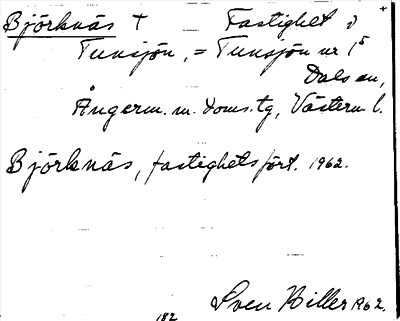 Björknäs † Fastighet i
Tunsjön, = Tunsjön nr 1⁵
Dals sn,
Ångerm. m. doms.tg, Västern. l.
Björknäs, fastighetsfört. 1962.
Sven Hiller 1962.
182